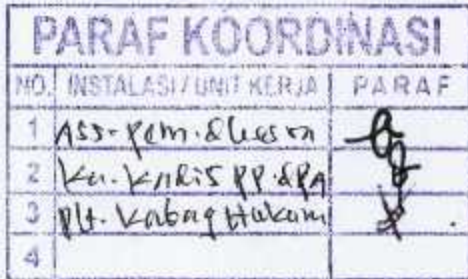 PARAF KOORDINASI
NO. INSTALASI / UNIT KERJA PARAF
1 Ass. Pem. & Kesra
2 Ka. Kadis PP. & PA
3 Plt. Kabag Hukum
4